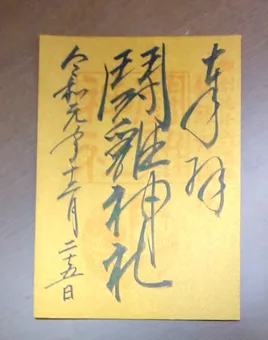 奉拝
鬪雞神社
令和元年十二月二十五日